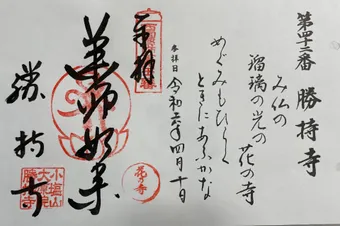 第四十二番 勝持寺
み仏の
瑠璃の光の花の寺
めぐみもひらく
ときにあふかな
参拝日 令和六年四月十日
奉拝
薬師如来
勝持寺
花の寺
小塩山
大原院
勝持寺